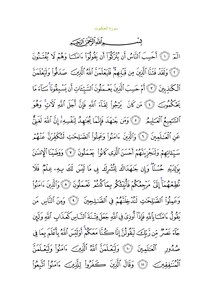 سورة العنكبوت
بسم الله الرحمن الرحيم
الم ١ أحسب الناس أن يتركوا أن يقولوا ءامنا وهم لا يفتنون
٢ ولقد فتنا الذين من قبلهم فليعلمن الله الذين صدقوا وليعلمن
الكذبين ٣ أم حسب الذين يعملون السيئات أن يسبقونا ساء ما
يحكمون ٤ من كان يرجوا لقاء الله فإن أجل الله لأت وهو
السميع العليم ٥ ومن جهد فإنما يجهد لنفسه إن الله لغني
عن العلمين ٦ والذين ءامنوا وعملوا الصلحت لنكفرن عنهم
سيئاتهم ولنجزينهم أحسن الذي كانوا يعملون ٧ ووصينا الإنسن
بولديه حسنا وإن جهداك لتشرك بي ما ليس لك به علم فلا
تطعهما إلي مرجعكم فأنبئكم بما كنتم تعملون ٨ والذين ءامنوا
وعملوا الصلحت لندخلنهم في الصلحين ٩ ومن الناس من
يقول ءامنا بالله فإذا أوذي في الله جعل فتنة الناس كعذاب الله ولئن
جاء نصر من ربك ليقولن إنا كنا معكم أوليس الله بأعلم بما في
صدور العلمين ١٠ وليعلمن الله الذين ءامنوا وليعلمن
المنفقين ١١ وقال الذين كفروا للذين ءامنوا اتبعوا